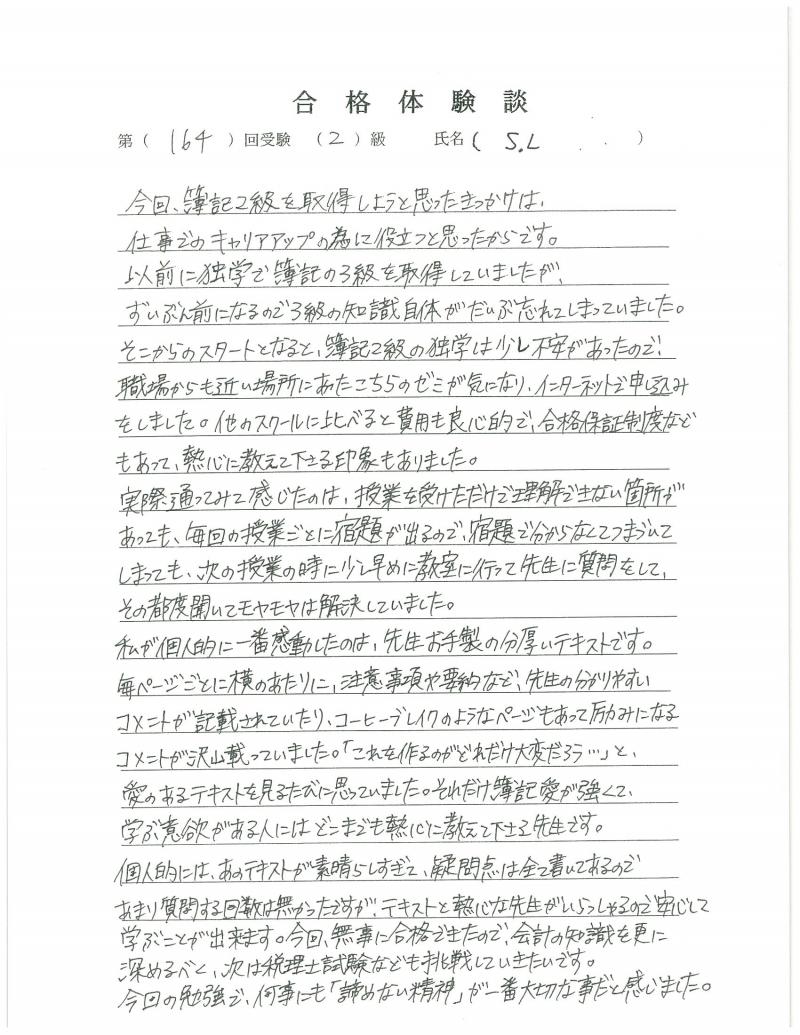 合格体験談
第（ 164 ）回受験 （ 2 ）級 氏名（ S.L ）
今回、簿記2級を取得しようと思ったきっかけは、
仕事でのキャリアアップの為に役立つと思ったからです。
以前に独学で簿記の3級を取得していましたが、
ずいぶん前になるので3級の知識自体がだいぶ忘れてしまっていました。
そこからのスタートとなると、簿記2級の独学は少し不安があったので、
職場からも近い場所にあたこちらのゼミが気になり、インターネットで申し込み
をしました。他のスクールに比べると費用も良心的で、合格保証制度など
もあって、熱心に教えて下さる印象もありました。
実際通ってみて感じたのは、授業を受けただけで理解できない箇所が
あっても、毎回の授業ごとに宿題が出るので、宿題で分からなくてつまづいて
しまっても、次の授業の時に少し早めに教室に行って先生に質問をして、
その都度聞いてモヤモヤは解決していました。
私が個人的に一番感動したのは、先生お手製の分厚いテキストです。
毎ページごとに横のあたりに、注意事項や要約など、先生の分かりやすい
コメントが記載されていたり、コーヒーブレイクのようなページもあって励みになる
コメントが沢山載っていました。「これを作るのがどれだけ大変だろう…」と、
愛のあるテキストを見るたびに思っていました。それだけ、簿記愛が強くて、
学ぶ意欲がある人にはどこまでも熱心に教えて下さる先生です。
個人的には、あのテキストが素晴らしすぎて、疑問点は全て書いてあるので
あまり質問する回数は無かったですが、テキストと熱心な先生がいらっしゃるので安心して
学ぶことが出来ます。今回、無事に合格できたので、会計の知識を更に
深めるべく、次は税理士試験なども挑戦していきたいです。
今回の勉強で、何事にも「諦めない精神」が一番大切な事だと感じました。